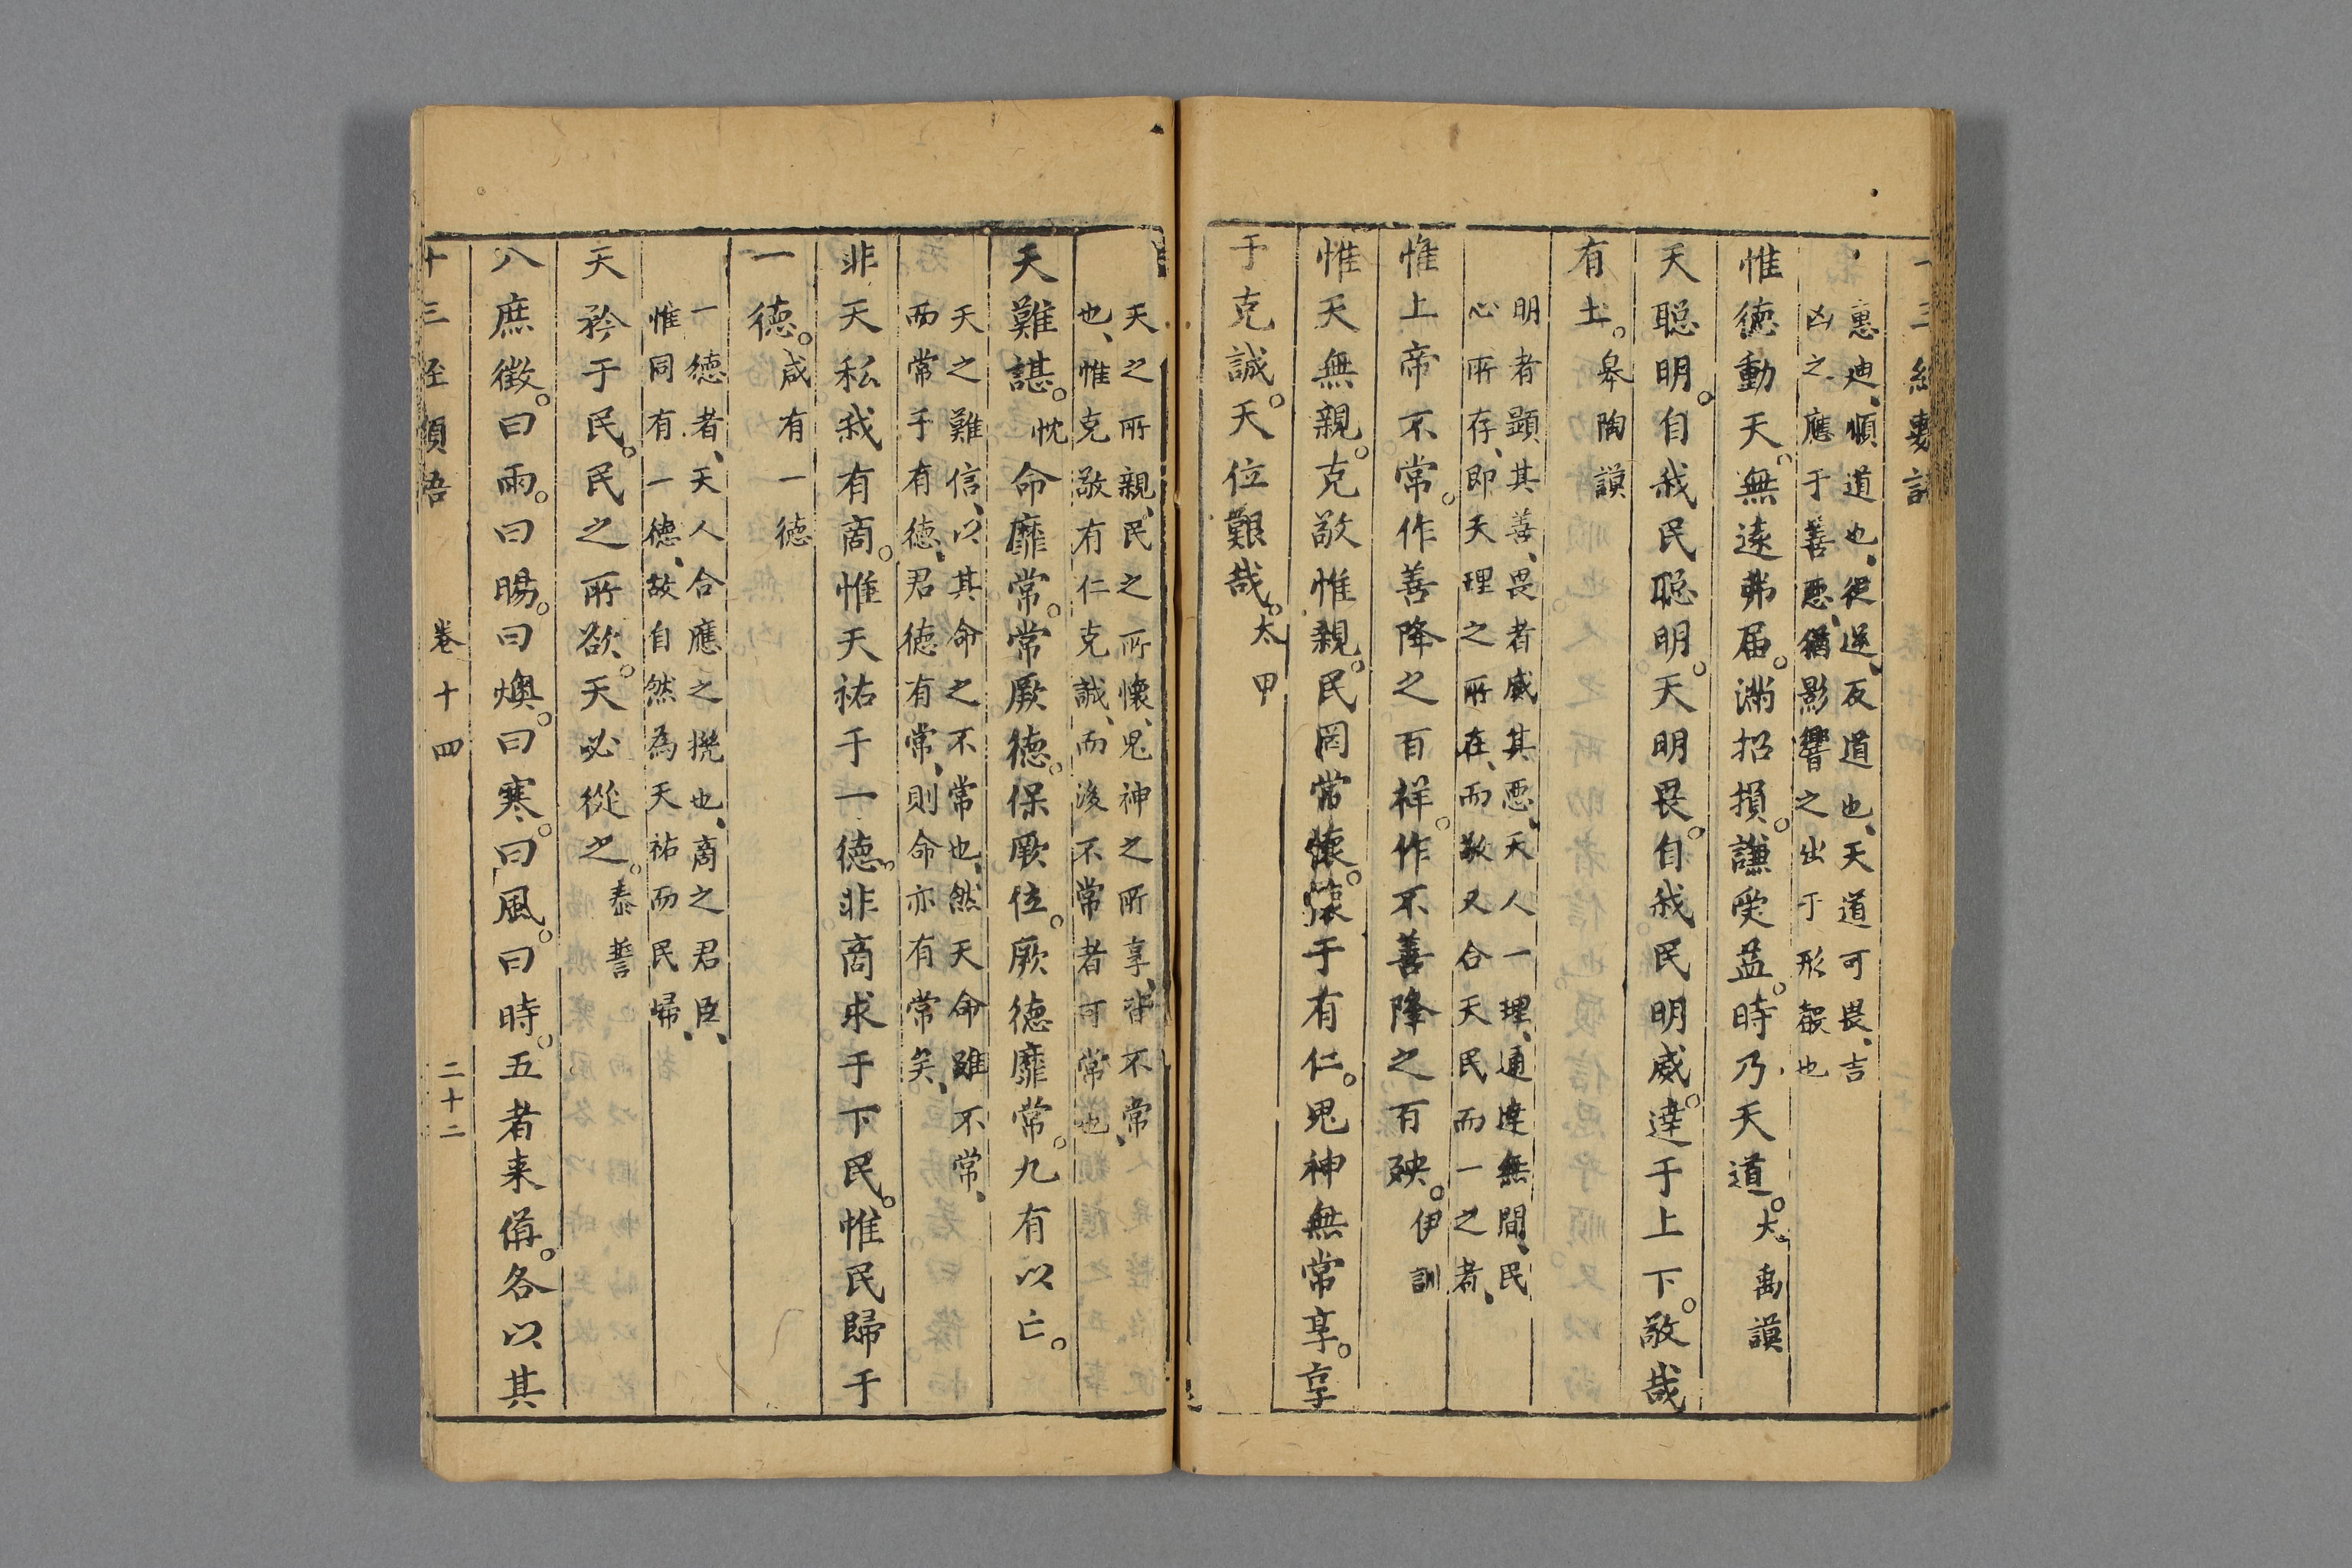 惠迪、順道也、從逆、反道也、天道可畏、吉
凶之應于善惡、猶影響之出于形聲也
惟德動天。無遠弗届。滿招損。謙受益。時乃天道。大禹謨
天聪明。自我民聪明。天明畏。自我民明威。達于上下。敬哉
有土。皋陶謨
明者顕其善、畏者威其惡、天人一理、通達無間、民
心所存、即天理之所在、而敬又合天民而一之者、
惟上帝不常。作善降之百祥。作不善降之百殃。伊訓
惟天無親。克敬惟親。民罔常懷。懷于有仁。鬼神無常享。享
于克誠。天位艱哉。太甲
天之所親、民之所懷、鬼神之所享、皆不常
也、惟克敬有仁克誠、而後不常者可常也、
天難諶。忱命靡常。常厥德。保厥位。厥德靡常。九有以亡。
天之難信、以其命之不常也、然天命雖不常、
而常于有德、君德有常、則命亦有常矣、
非天私我有商。惟天祐于一德。非商求于下民。惟民歸于
一德。咸有一德
一德者、天人合應之揆也、商之君臣、
惟同有一德、故自然為天祐而民歸、
天矜于民。民之所欲。天必從之。泰誓
八庶徵。曰雨。曰暘。曰燠。曰寒。曰風。曰時。五者来俻。各以其
十三经須吾 卷十四 二十二